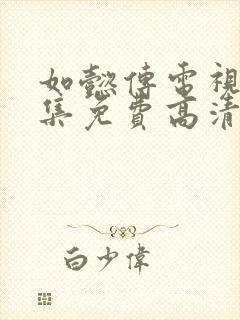 如懿傳電視
集免費高清
白少偉